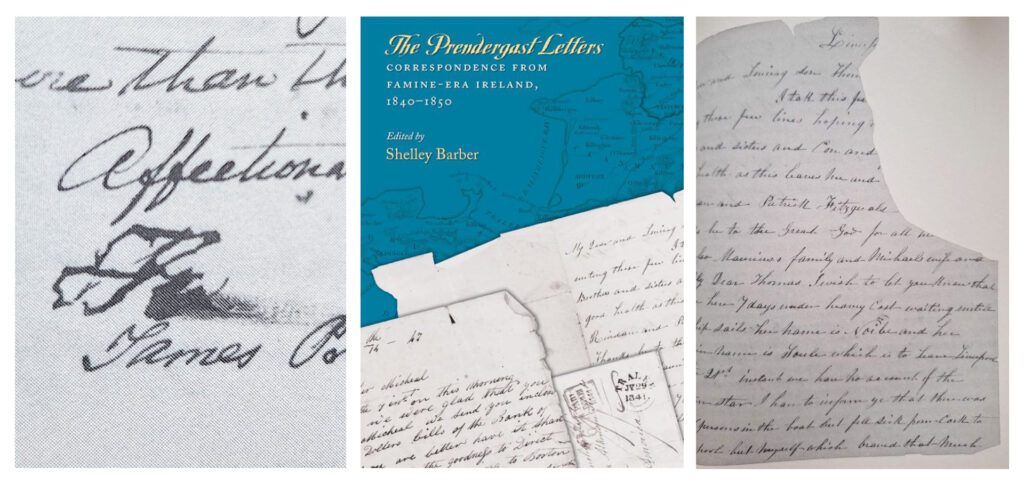 ere than th
Affectiona
James Po
The Prendergast Letters
CORRESPONDENCE FROM
FAMINE-ERA IRELAND,
1840–1850
Edited by
Shelley Barber
My Dear and Loving
I ta
writing these few lin
Brother and sisters a
good health as this
Riordan and P
Thanks be to th
14 – 47
Micheal
on this morning
we were glad that you
Micheal we send you
Dollers bills of the Bank of
are better have it than
the goodness to
to Boston
TRAL
1841
Liverp
and Loving son Thom
I tak this
these few lines hoping
and sisters and Con and
health as this leaves me and
and Patrick Fitzgerals
be to the Great God for all
Maurices family and Michaels wife and
My Dear Thomas I wish to let you Know that
here 7 days under heavy Cost waiting untill
ship sails her name is and her
name is Soule which is to leave Liverpool
21st instant we have no account of the
star I have to inform ye that there was
persons in the boat but fell sick from Cork to
pool but myself which braved that much